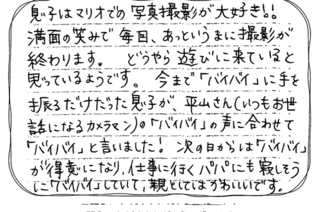 息子はマリオでの写真撮影が大好き!!
満面の笑みで毎日、あっというまに撮影が
終わります。 どうやら遊びに来ていると
思っているようです。 今まで「バイバイ」に手を
振るだけだった息子が、平山さん(いつもお世
話になるカメラマン)の「バイバイ」の声に合わせて
「バイバイ」と言いました! 次の日からは「バイバイ」
が得意になり、仕事に行くパパにも寂しそう
に「バイバイ」していて、親としてはかわいいです。